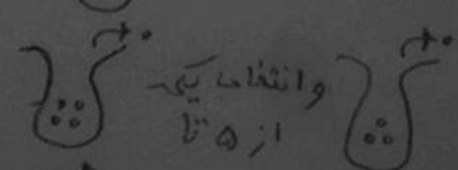 وانتخاب یکی
از ۵ تا